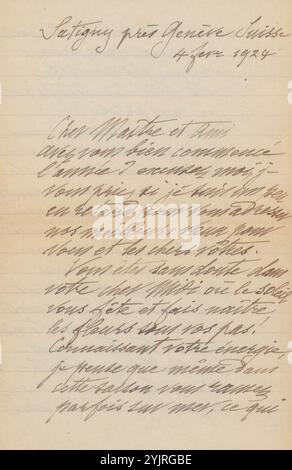 Satigny près Genève Suisse
4 fevr 1924
Cher Maître et ami
avez vous bien commencé
l'année ? excusez moi, je
vous prie, si je suis un peu
en retard pour vous adresser
nos meilleurs vœux pour
vous et les chers vôtres.
Vous êtes sans doute dans
votre cher Midi où le soleil
vous fête et fais naître
les fleurs sous vos pas.
Connaissant votre énergie
je pense que même dans
cette saison vous ramez
parfois sur mer, ce qui
alamy
Image ID: 2YJRGBE
www.alamy.com